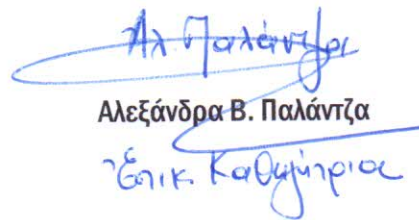 Αλ Παλάντζα
Αλεξάνδρα Β. Παλάντζα
Επικ. Καθηγήτρια